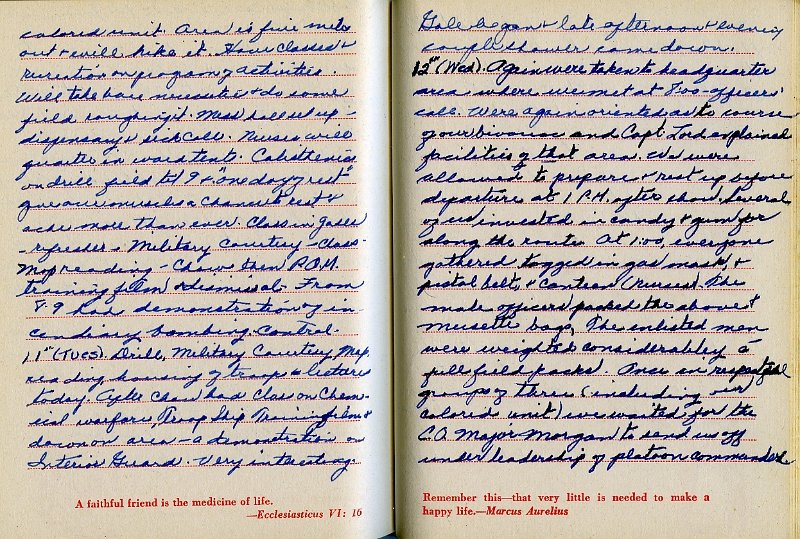 colored unit. Area is five miles
out & will hike it. Have classes &
recreation on program of activities.
Will take bare necessities & do some
field roughing it. Mess hall set up -
dispensary & sick call. Nurses will
quarter in ward tents. Calisthenics
on drill field till 9 & "one day of rest"
gave our muscles a chance to rest &
ache more than ever. Class in gases
- refresher - Military Courtesy - Class -
Map reading - Chow - then P.O.M.
training film & dismissal. From
8-9 had demonstration of in
cendiary bombing - control.
11th (Tues). Drill, Military Courtesy, Map
reading, housing of troops lectures
today. After chow had class on Chem-
ical warfare, Troop Ship Training film &
down on area - a demonstration on
Interior Guard. Very interesting.
A faithful friend is the medicine of life.
—Ecclesiasticus VI: 16
Gale began late afternoon & evening
couple shower came down.
12th (Wed). Again were taken to headquarter
area where we met at 8:00 - officers'
call. Were again oriented as to course
of our bivouac and Capt. Lord explained
facilities of that area. We were
allowed to prepare & rest up before
departure at 1 P.M. after chow. Several
of us invested in candy & gum for
along the route. At 1:00, everyone
gathered togged in gas mask, &
pistol belt, & canteen (nurses). The
male officers packed the above &
musette bags. The enlisted men
were weighted considerably c̄
full field packs. Once in respective
groups of three (including our
colored unit) we waited for the
C.O. Major Morgan to send us off
under leadership of platoon commanders
Remember this—that very little is needed to make a
happy life.—Marcus Aurelius